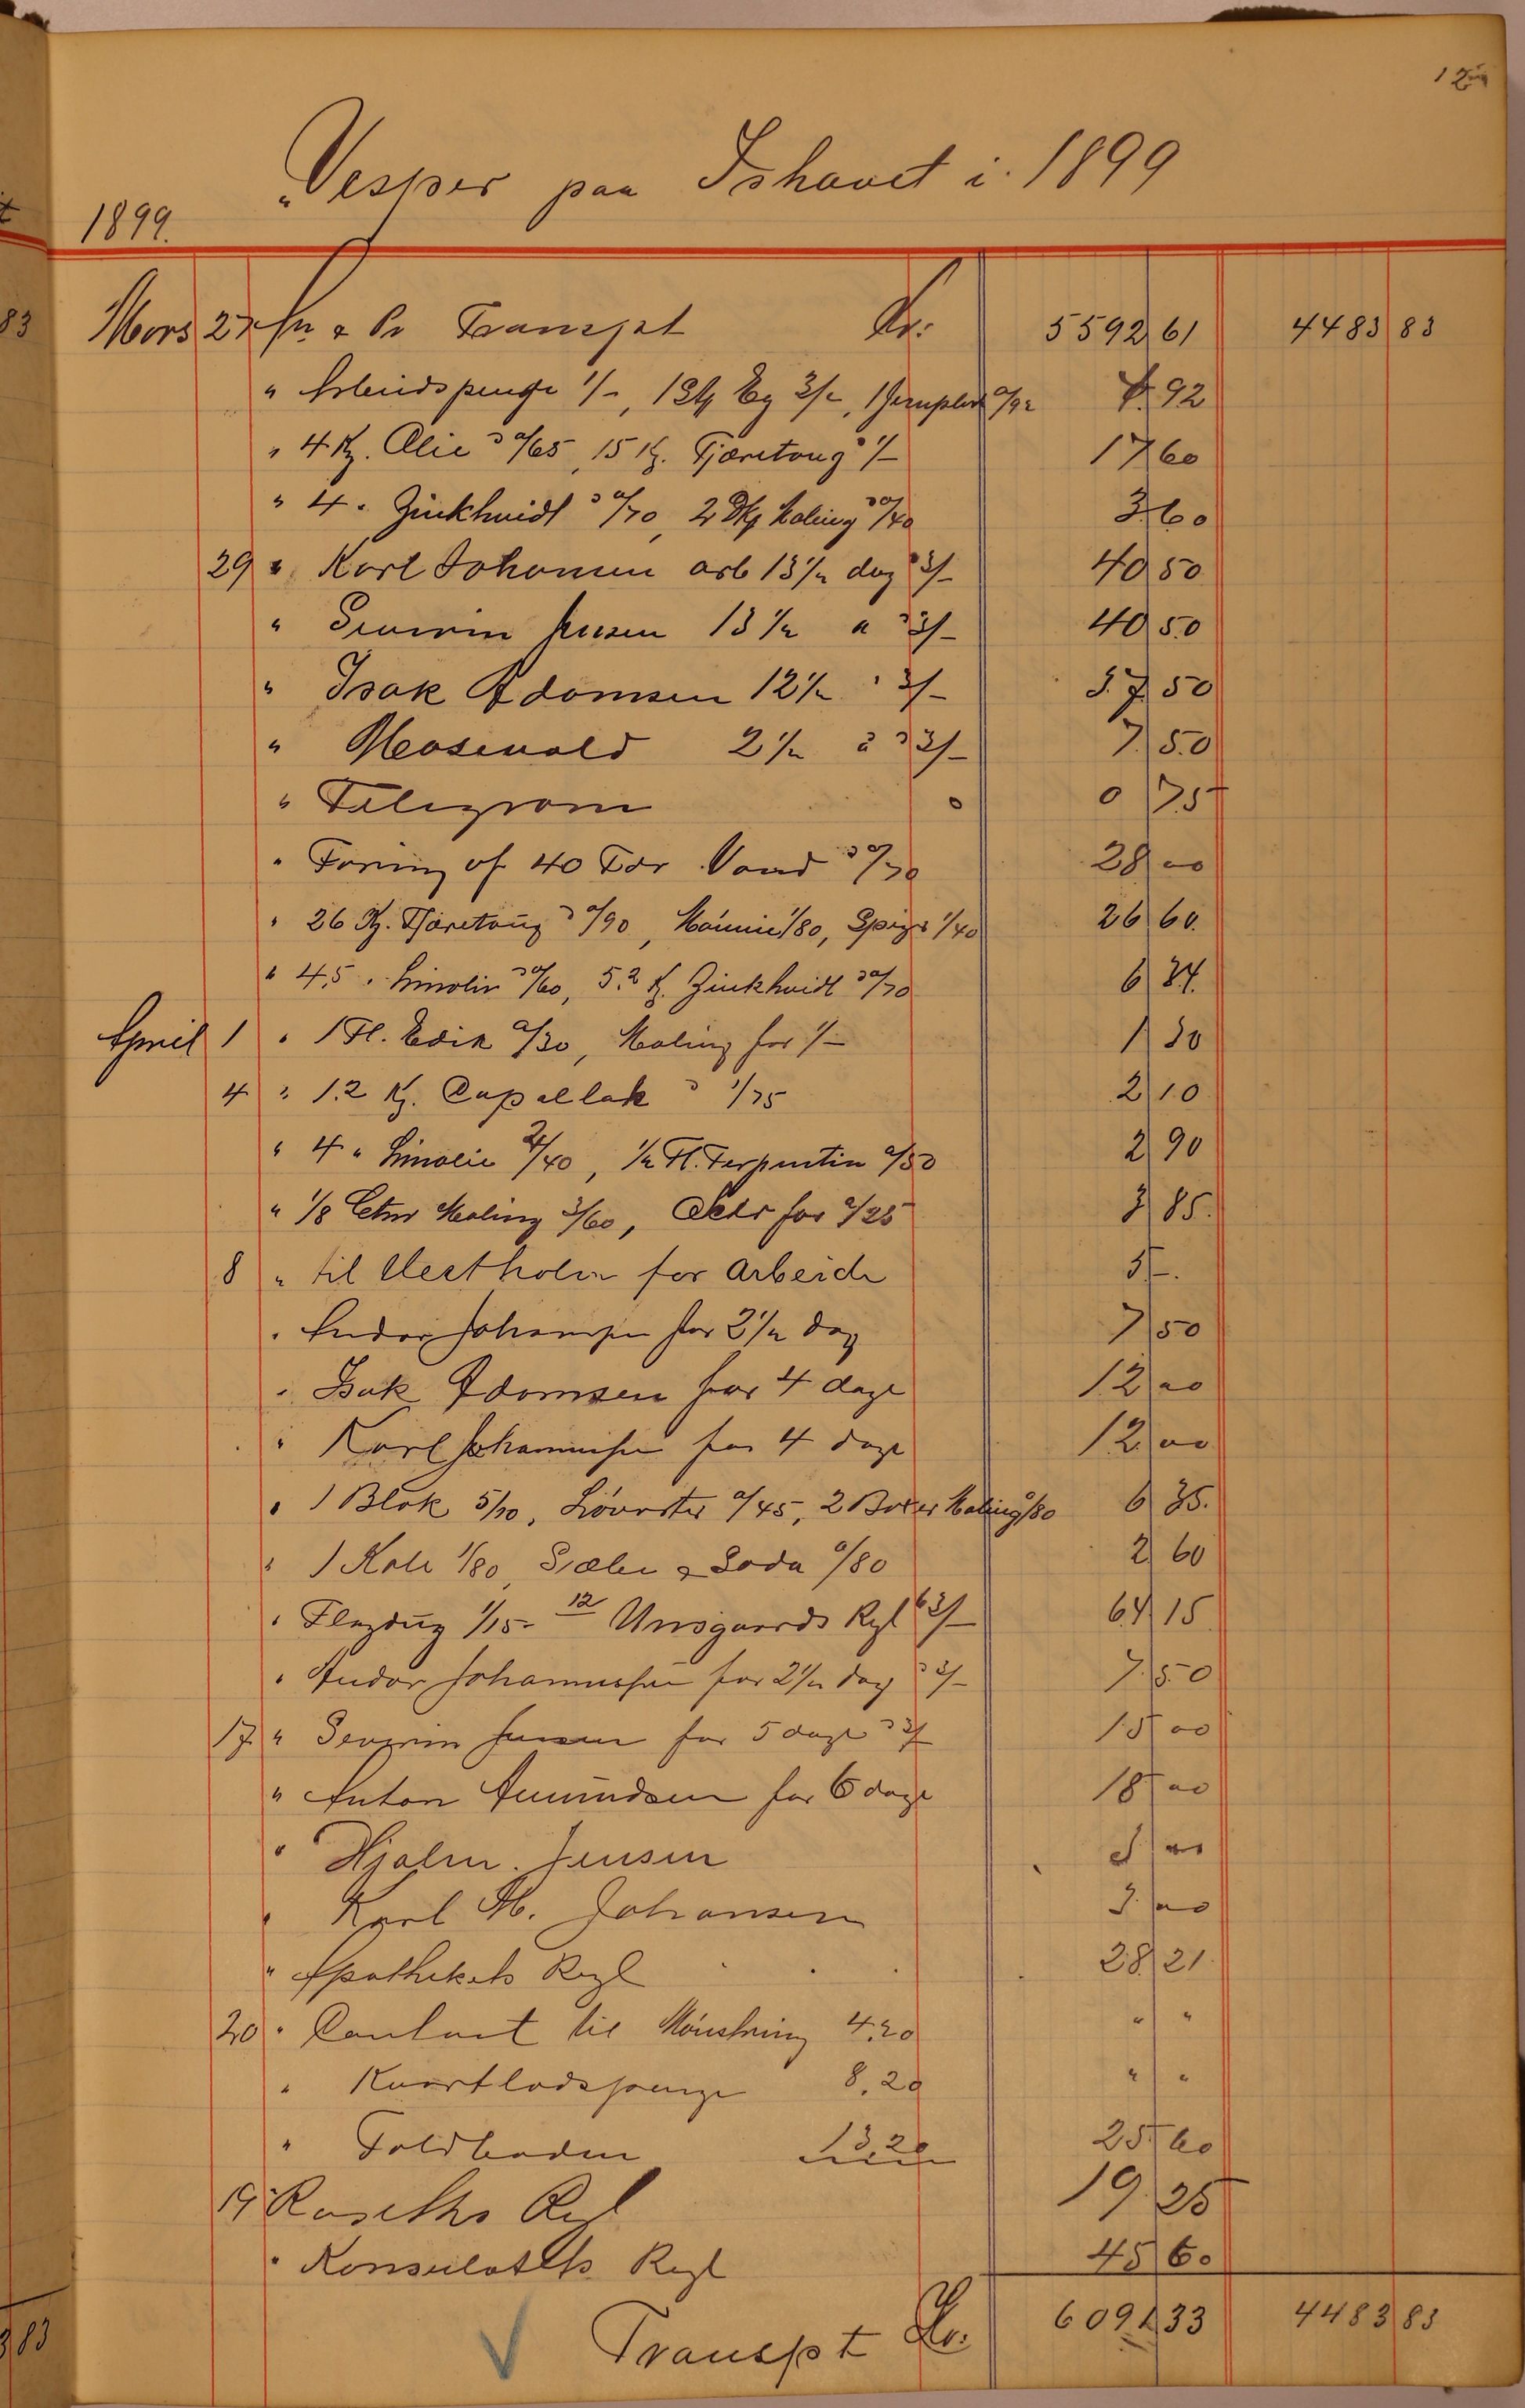 12
"Vesper paa Ishavet i 1899
1899.
Mars 27 Transpt Kr: 5592 61 4483 83
" Arbeidspenge 1/-, 1 Stk Eg 3/-, 92
" 4 Kg. Olie à 0/65, 15 Kg. Tjæretoug à 1/- 17 60
" 4 " Zinkhvidt à 0/70, 2 Maling à 0/40 3 60
29 " Karl Johansen arb 13 1/2 dag à 3/- 40 50
" Severin Jensen 13 1/2 " à 3/- 40 50
" Isak Adamsen 12 1/2 " 3/- 37 50
" Mosevold 2 1/2 à 3/- 7 50
" Telegram 0 75
" Føring af 40 Tdr Vand à 0/70 28 00
" 26 Kg. Tjæretoug à 0/90, Mønnie 1/80, Spiger 1/40 26 60
" 4,5 " Linolie à 0/60, 5.2 K. Zinkhvidt à 0/70 6 34
April 1 " 1 Fl. Edik 0/30, Maling for 1/- 1 30
4 " 1.2 Kg. Capallak à 1/75 2 10
" 4 " Linolie 2/40, 1/2 Fl. Terpentin 0/50 2 90
" 1/8 Ctnr Maling 3/60, for 0/25 3 85
8 " til Vestholm for Arbeide 5 -
" Andor Johansen for 2 1/2 dag 7 50
" Isak Adamsen for 4 dage 12 00
" Karl Johannesen for 4 dage 12 00
" 1 Blok 5/10, 0/45, 2 Boxer Maling 0/80 6 35
" 1 Kole 1/80, Sæbe & Soda 0/80 2 60
" Flagdug 1/15 - 12 Unsgaards Rgl 63/- 64 15
" Andor Johannessen for 2 1/2 dag à 3/- 7 50
17 " Severin Jensen for 5 dage à 3/- 15 00
" Anton Amundsen for 6 dage 18 00
" Hjalm. Jensen 3 00
" Karl M. Johansen 3 00
" Apothekets Rgl 28 21
20 " Contant til Mønstring 4.20 " "
" Kvartladspenge 8.20 " "
" Toldboden 13.20 25 60
19 " Roseths Rgl 19 25
" Konsulatets Rgl 45 60
Transpt Kr: 6091 33 4483 83